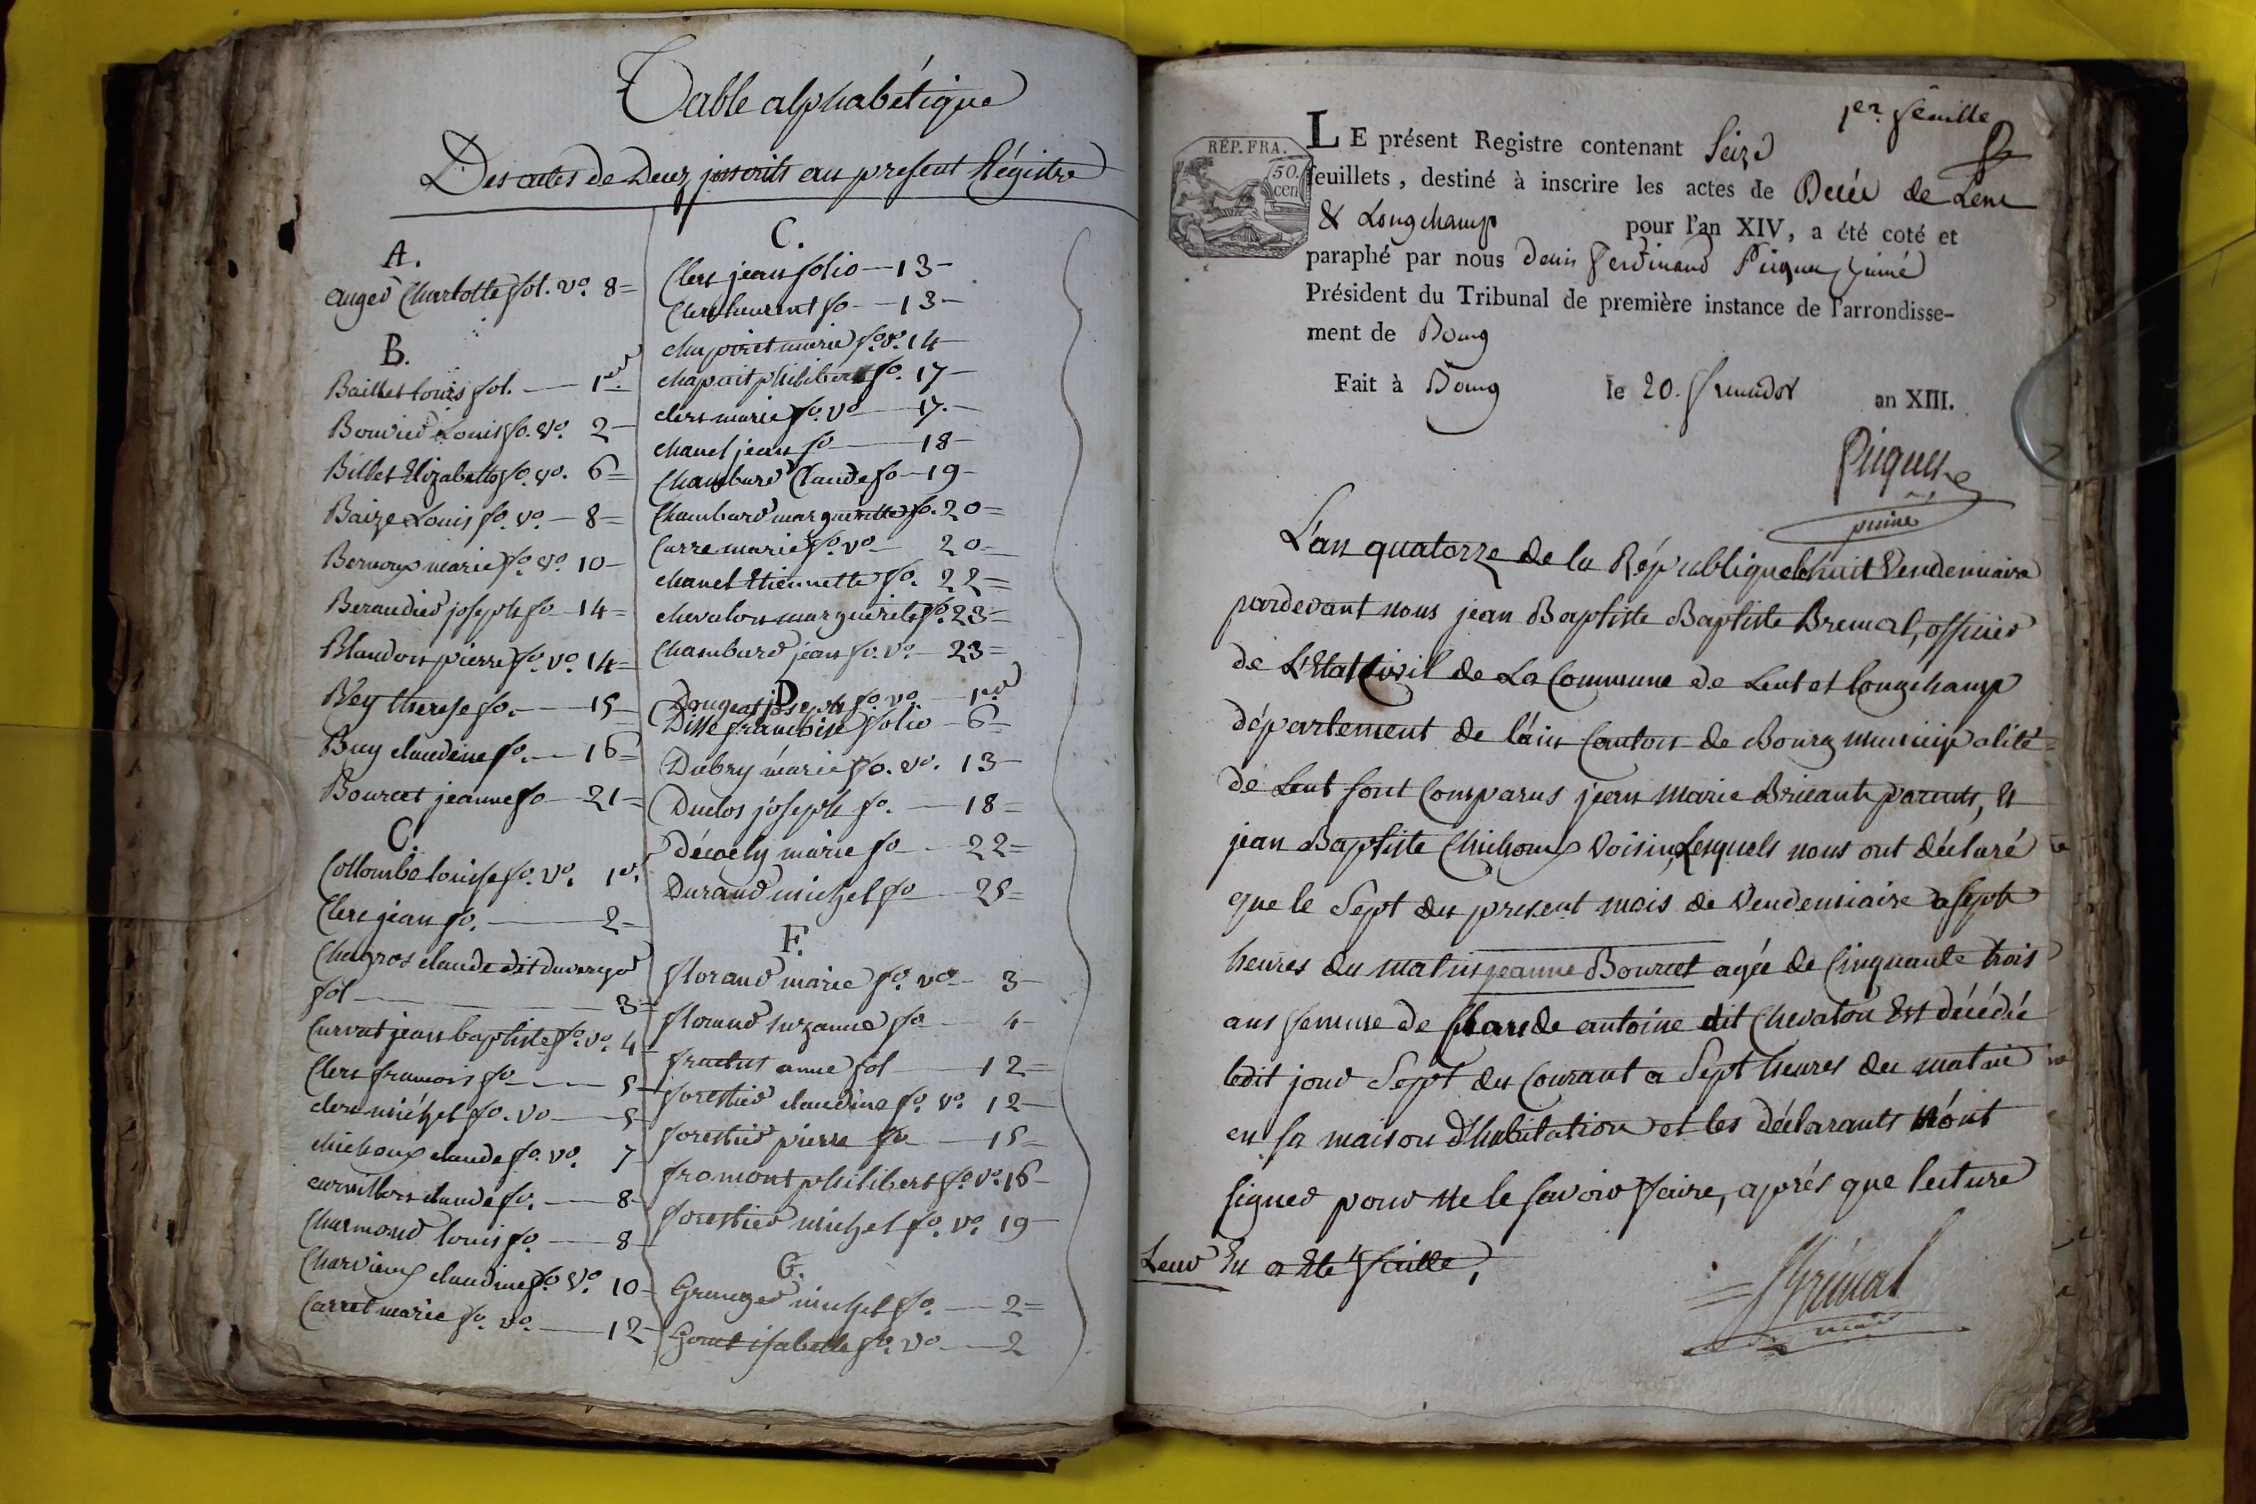 Table alphabétique
Des actes de Decez inscrits au present Régistre
A.
auger Charlotte fol. vo. 8=
B.
Baillet louis fol. — 1er
Bouvier Louis fo. vo. 2—
Billet Elizabeth fo. vo. 6=
Baize Louis fo. vo. — 8=
Bernoux marie fo. vo. 10—
Beraudier joseph fo — 14=
Blandon pierre fo. vo. 14=
Bey therese fo. — 15—
Buy claudine fo. — 16=
Bourcet jeanne fo — 21=
C.
Collombe louise fo. vo. 1er.
Clerc jean fo. — 2—
Chagros claude dit duverger
fol — 3=
Curvat jean baptiste fo. vo. 4—
Clerc francois fo — 5—
clerc michel fo. vo — 5—
chichoux claude fo. vo. 7—
claude fo. — 8—
Charmond louis fo. — 8—
Charvieux claudine fo. vo. 10—
Carret marie fo. vo. — 12—
C.
Clerc jean folio — 13—
Clerc laurent fo — 13—
chapoict marie fo. vo. 14—
chapoit philibert fo. 17—
clerc marie fo. vo — 17.—
chanel jean fo — 18—
Chambard Claude fo — 19—
Chambard marguerite fo. 20=
Carre marie fo. vo — 20—
chanel Etiennette fo. 22=
chevalon marguerite fo. 23=
Chambard jean fo. vo. — 23=
D
joseph fo. vo. — 1er
Disse francoise folio — 6=
Dubry marie fo. vo. 13—
Duclos joseph fo. — 18=
Décoely marie fo — 22=
Durand michel fo — 25=
F.
florand marie fo. vo — 3—
florand suzanne fo — 4—
anne fol — 12=
forestier claudine fo. vo. 12—
forestier pierre fo — 15=
fromont philibert fo. vo. 16—
forestier michel fo. vo. 19—
G.
Granger michel fo. — 2=
isabelle fo. vo — 2
1er. feuille
RÉP. FRA.
50.
cen
LE présent Registre contenant Seize
feuillets, destiné à inscrire les actes de Décés de Lent
& Longchamp pour l'an XIV, a été coté et
paraphé par nous denis ferdinand Picquet puiné
Président du Tribunal de première instance de l'arrondisse-
ment de Bourg
Fait à Bourg le 20. fructidor an XIII.
Picquet
puiné
L'an quatorze de la République le huit Vendemiaire
pardevant nous jean Baptiste Baptiste Bremal, officier
de L'Etat Civil de La Commune de Lent et Longchamp
département de l'ain Canton de Bourg municipalité
de Lent sont Comparus jean marie Bricant parents, et
jean Baptiste Chichoux Voisin, Lesquels nous ont déclaré
que le Sept du present mois de Vendemiaire a Sept
heures du matin jeanne Bourcet agée de Cinquante trois
ans femme de Claude antoine dit Chevalon Est décédée
ledit jour Sept du Courant a Sept heures du matin
en sa maison d'habitation et les déclarants n'ont
signer pour ne le savoir faire, aprés que lecture
Leur En a Eté faitte,
Brémal
maire